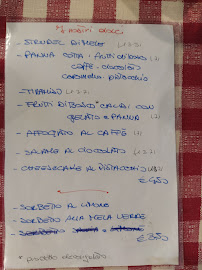 I NOSTRI DOLCI
- STRUDEL DI MELE (1.3.7)
- PANNA COTTA : FRUTTI DI BOSCO (7)
CAFFÈ - CIOCCOLATO
CARAMELLO - PISTACCHIO
- TIRAMISÙ (1.3.7)
- FRUTTI DI BOSCO CALDI CON
GELATO o PANNA (7)
- AFFOGATO AL CAFFÈ (7)
- SALAME AL CIOCCOLATO (1.3.7)
- CHEESECAKE AL PISTACCHIO
- SORBETTO AL LIMONE
- SORBETTO ALLA MELA VERDE
* prodotto